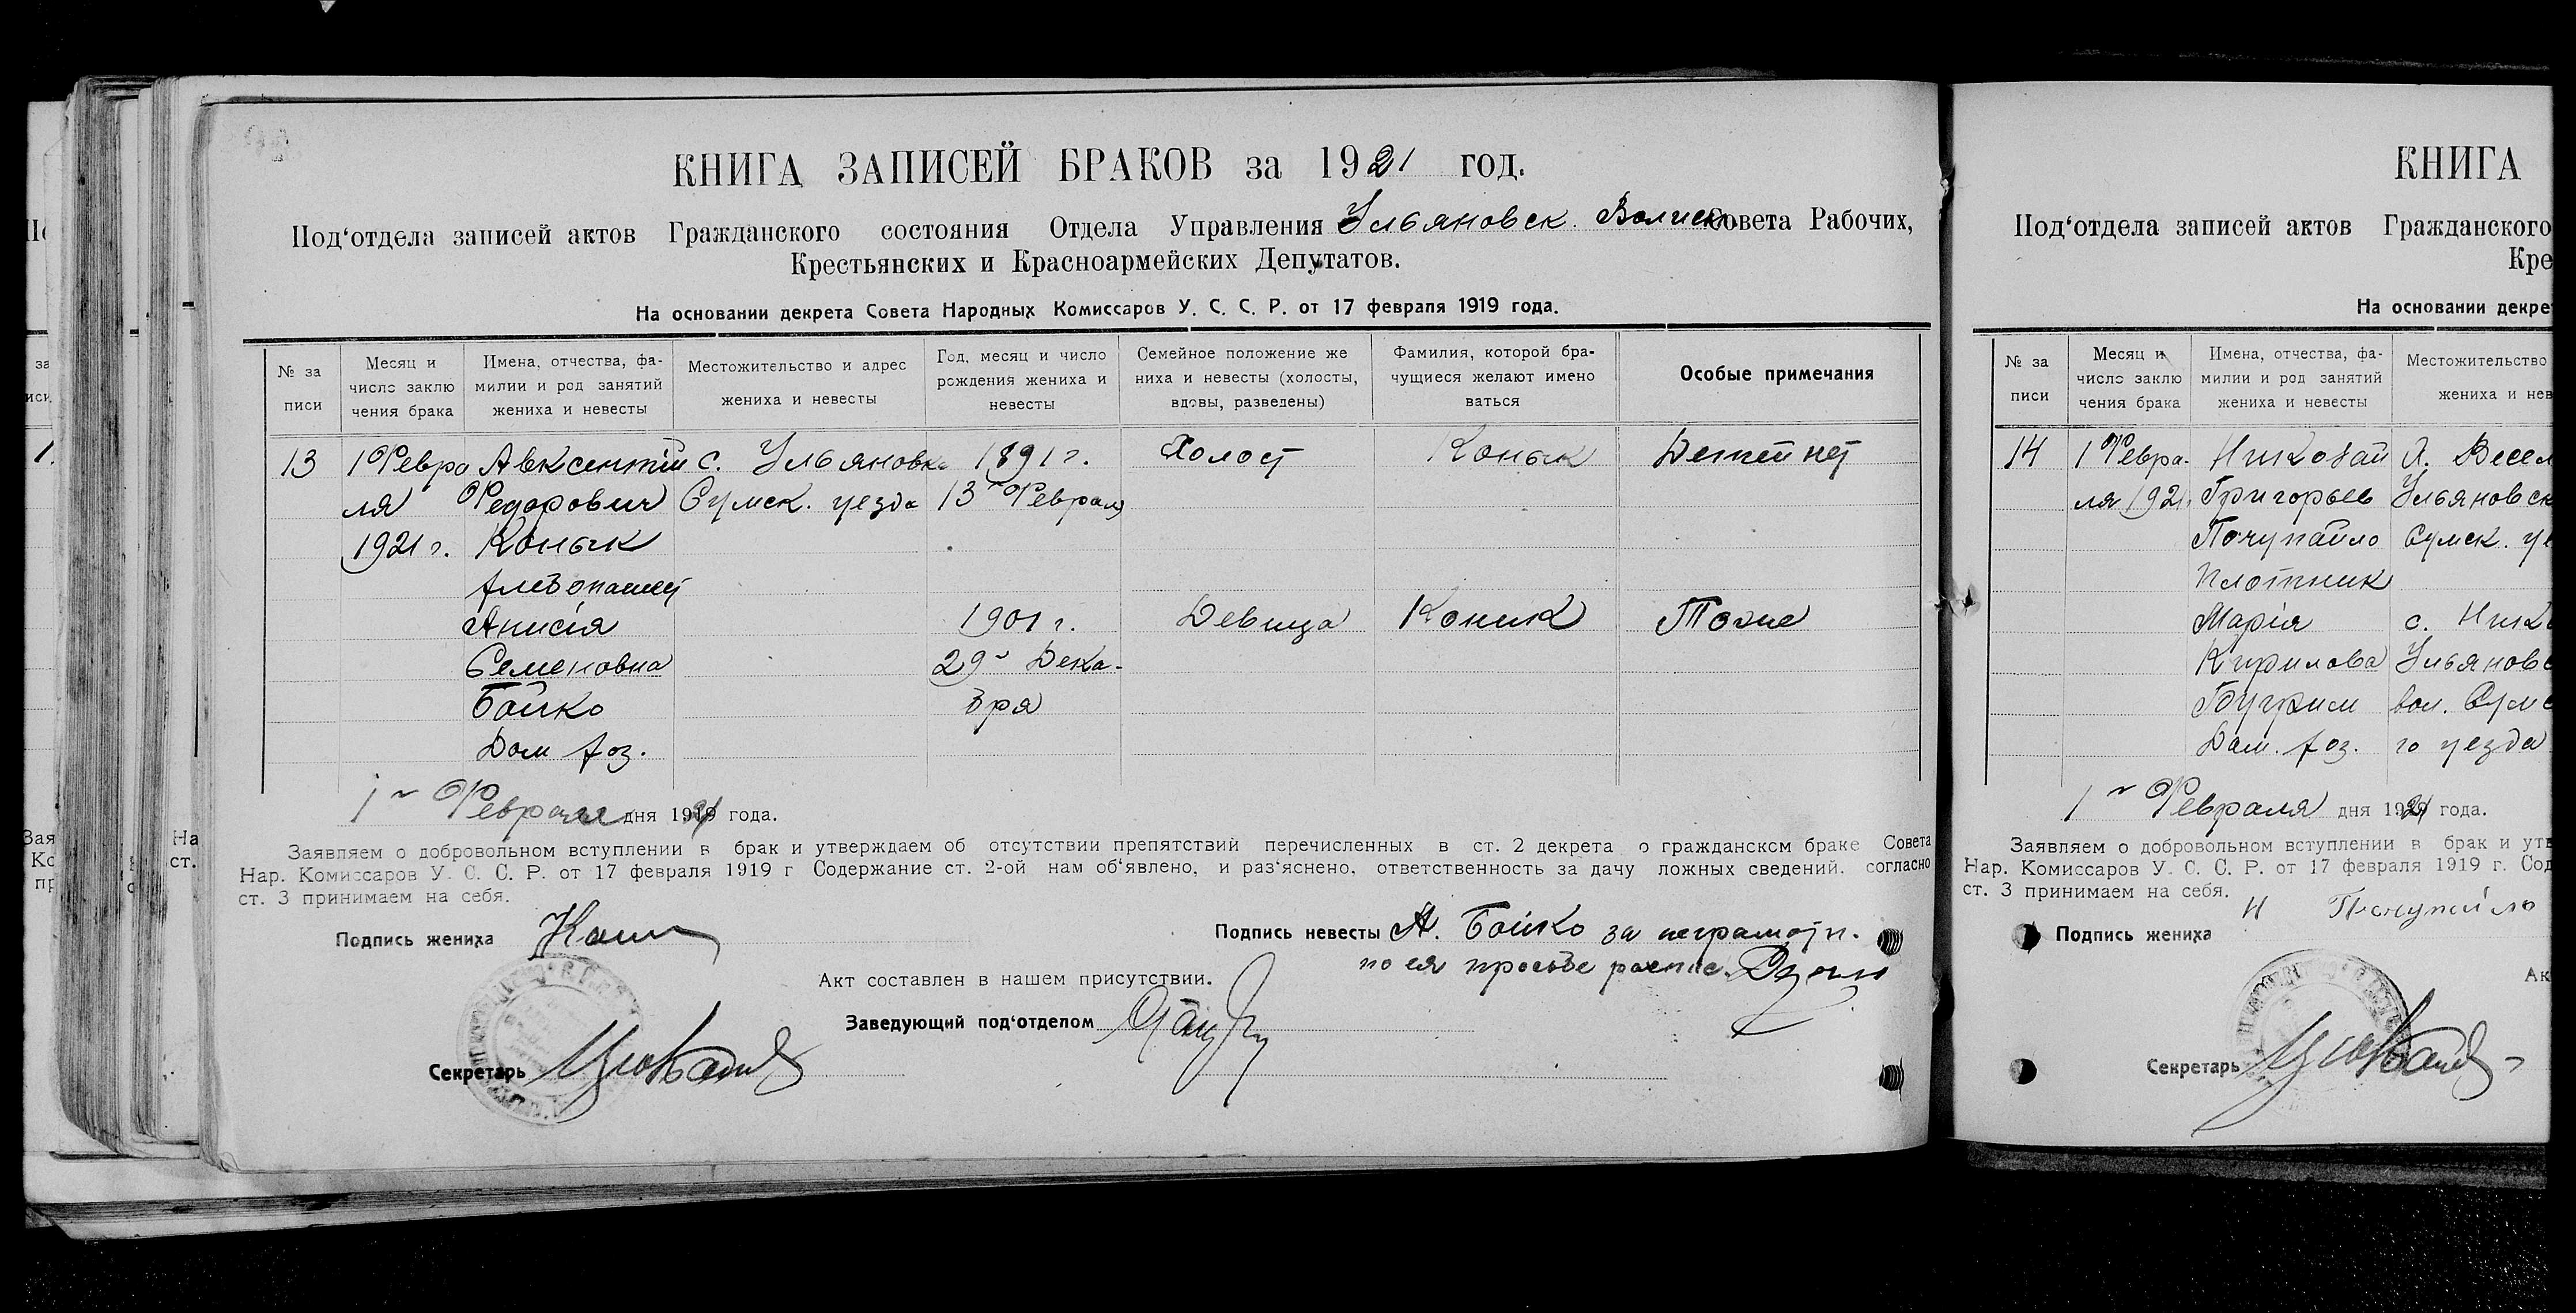 КНИГА ЗАПИСЕЙ БРАКОВ за 1921 год.
Под‘отдела записей актов Гражданского состояния Отдела Управления Ульяновск. Волиск. Совета Рабочих,
Крестьянских и Красноармейских Депутатов.
На основании декрета Совета Народных Комиссаров У. С. С. Р. от 17 февраля 1919 года.
№ за писи
Месяц и число заклю чения брака
Имена, отчества, фа- милии и род занятий жениха и невесты
Местожительство и адрес жениха и невесты
Год, месяц и число рождения жениха и невесты
Семейное положение же ниха и невесты (холосты, вдовы, разведены)
Фамилия, которой бра- чущиеся желают имено ваться
Особые примечания
13 1 Февра Авксентій с. Ульяновка 1891 г. Холост Коник Детей нет
ля Федорович Сумск. уезда 13 Февраля
1921 г. Коник
Хлебопашец
Анисія 1901 г. Девица Коник Тоже
Семеновна 29 Дека-
Бойко бря
Дом хоз.
1 Февраля дня 1921 года.
Заявляем о добровольном вступлении в брак и утверждаем об отсутствии препятствий перечисленных в ст. 2 декрета о гражданском браке Совета
Нар. Комиссаров У. С. С. Р. от 17 февраля 1919 г Содержание ст. 2-ой нам об‘явлено, и раз‘яснено, ответственность за дачу ложных сведений. согласно
ст. 3 принимаем на себя.
Подпись жениха
Подпись невесты А. Бойко за неграмотн.
по ея просьбе распис.
Акт составлен в нашем присутствии.
Заведующий под‘отделом
Секретарь
КНИГА
Под‘отдела записей актов Гражданского
Кре
На основании декре
№ за писи
Месяц и число заклю чения брака
Имена, отчества, фа- милии и род занятий жениха и невесты
Местожительство жениха и нев
14 1 Февра- Николай Х. Весел
ля 1921 Григорьев Ульяновск
Почупайло Сумск. уе
Плотник
Марія с. Нико
Кирилова Ульянов
вол. Сумс
Дом. хоз. го уезда
1 Февраля дня 1921 года.
Заявляем о добровольном вступлении в брак и утв
Нар. Комиссаров У. С. С. Р. от 17 февраля 1919 г. Сод
ст. 3 принимаем на себя.
Подпись жениха Н Почупайло
Ак
Секретарь